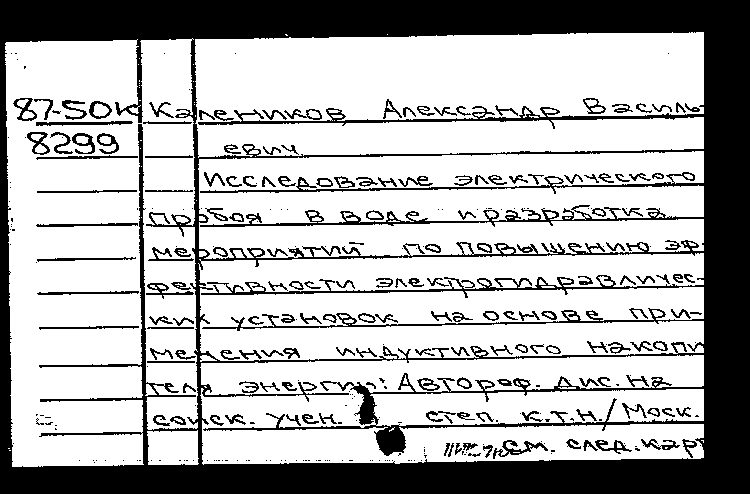 87-50к Калеников, Александр Василь-
8299 евич
Исследование электрического
пробоя в воде и разработка
мероприятий по повышению эф-
фективности электрогидравличес-
ких установок на основе при-
менения индуктивного накопи
теля энергии: Автореф. дис. на
соиск. учен. степ. к.т.н./Моск.
см. след. карт